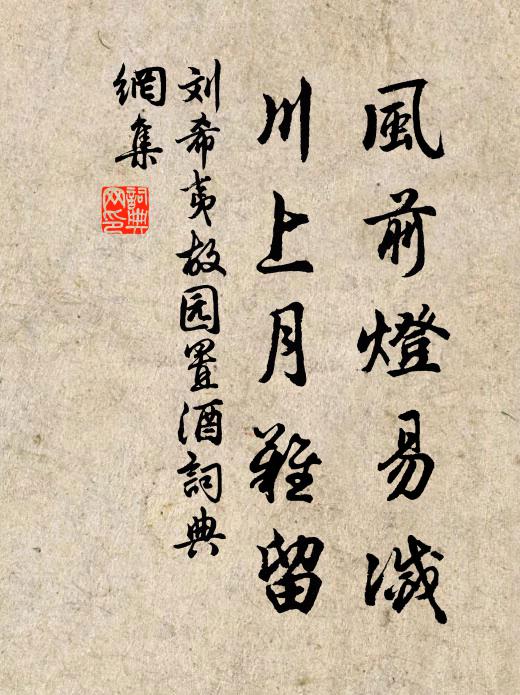 風前燈易滅
川上月難留
刘希夷故园置酒詞典
網集
詞典
网印